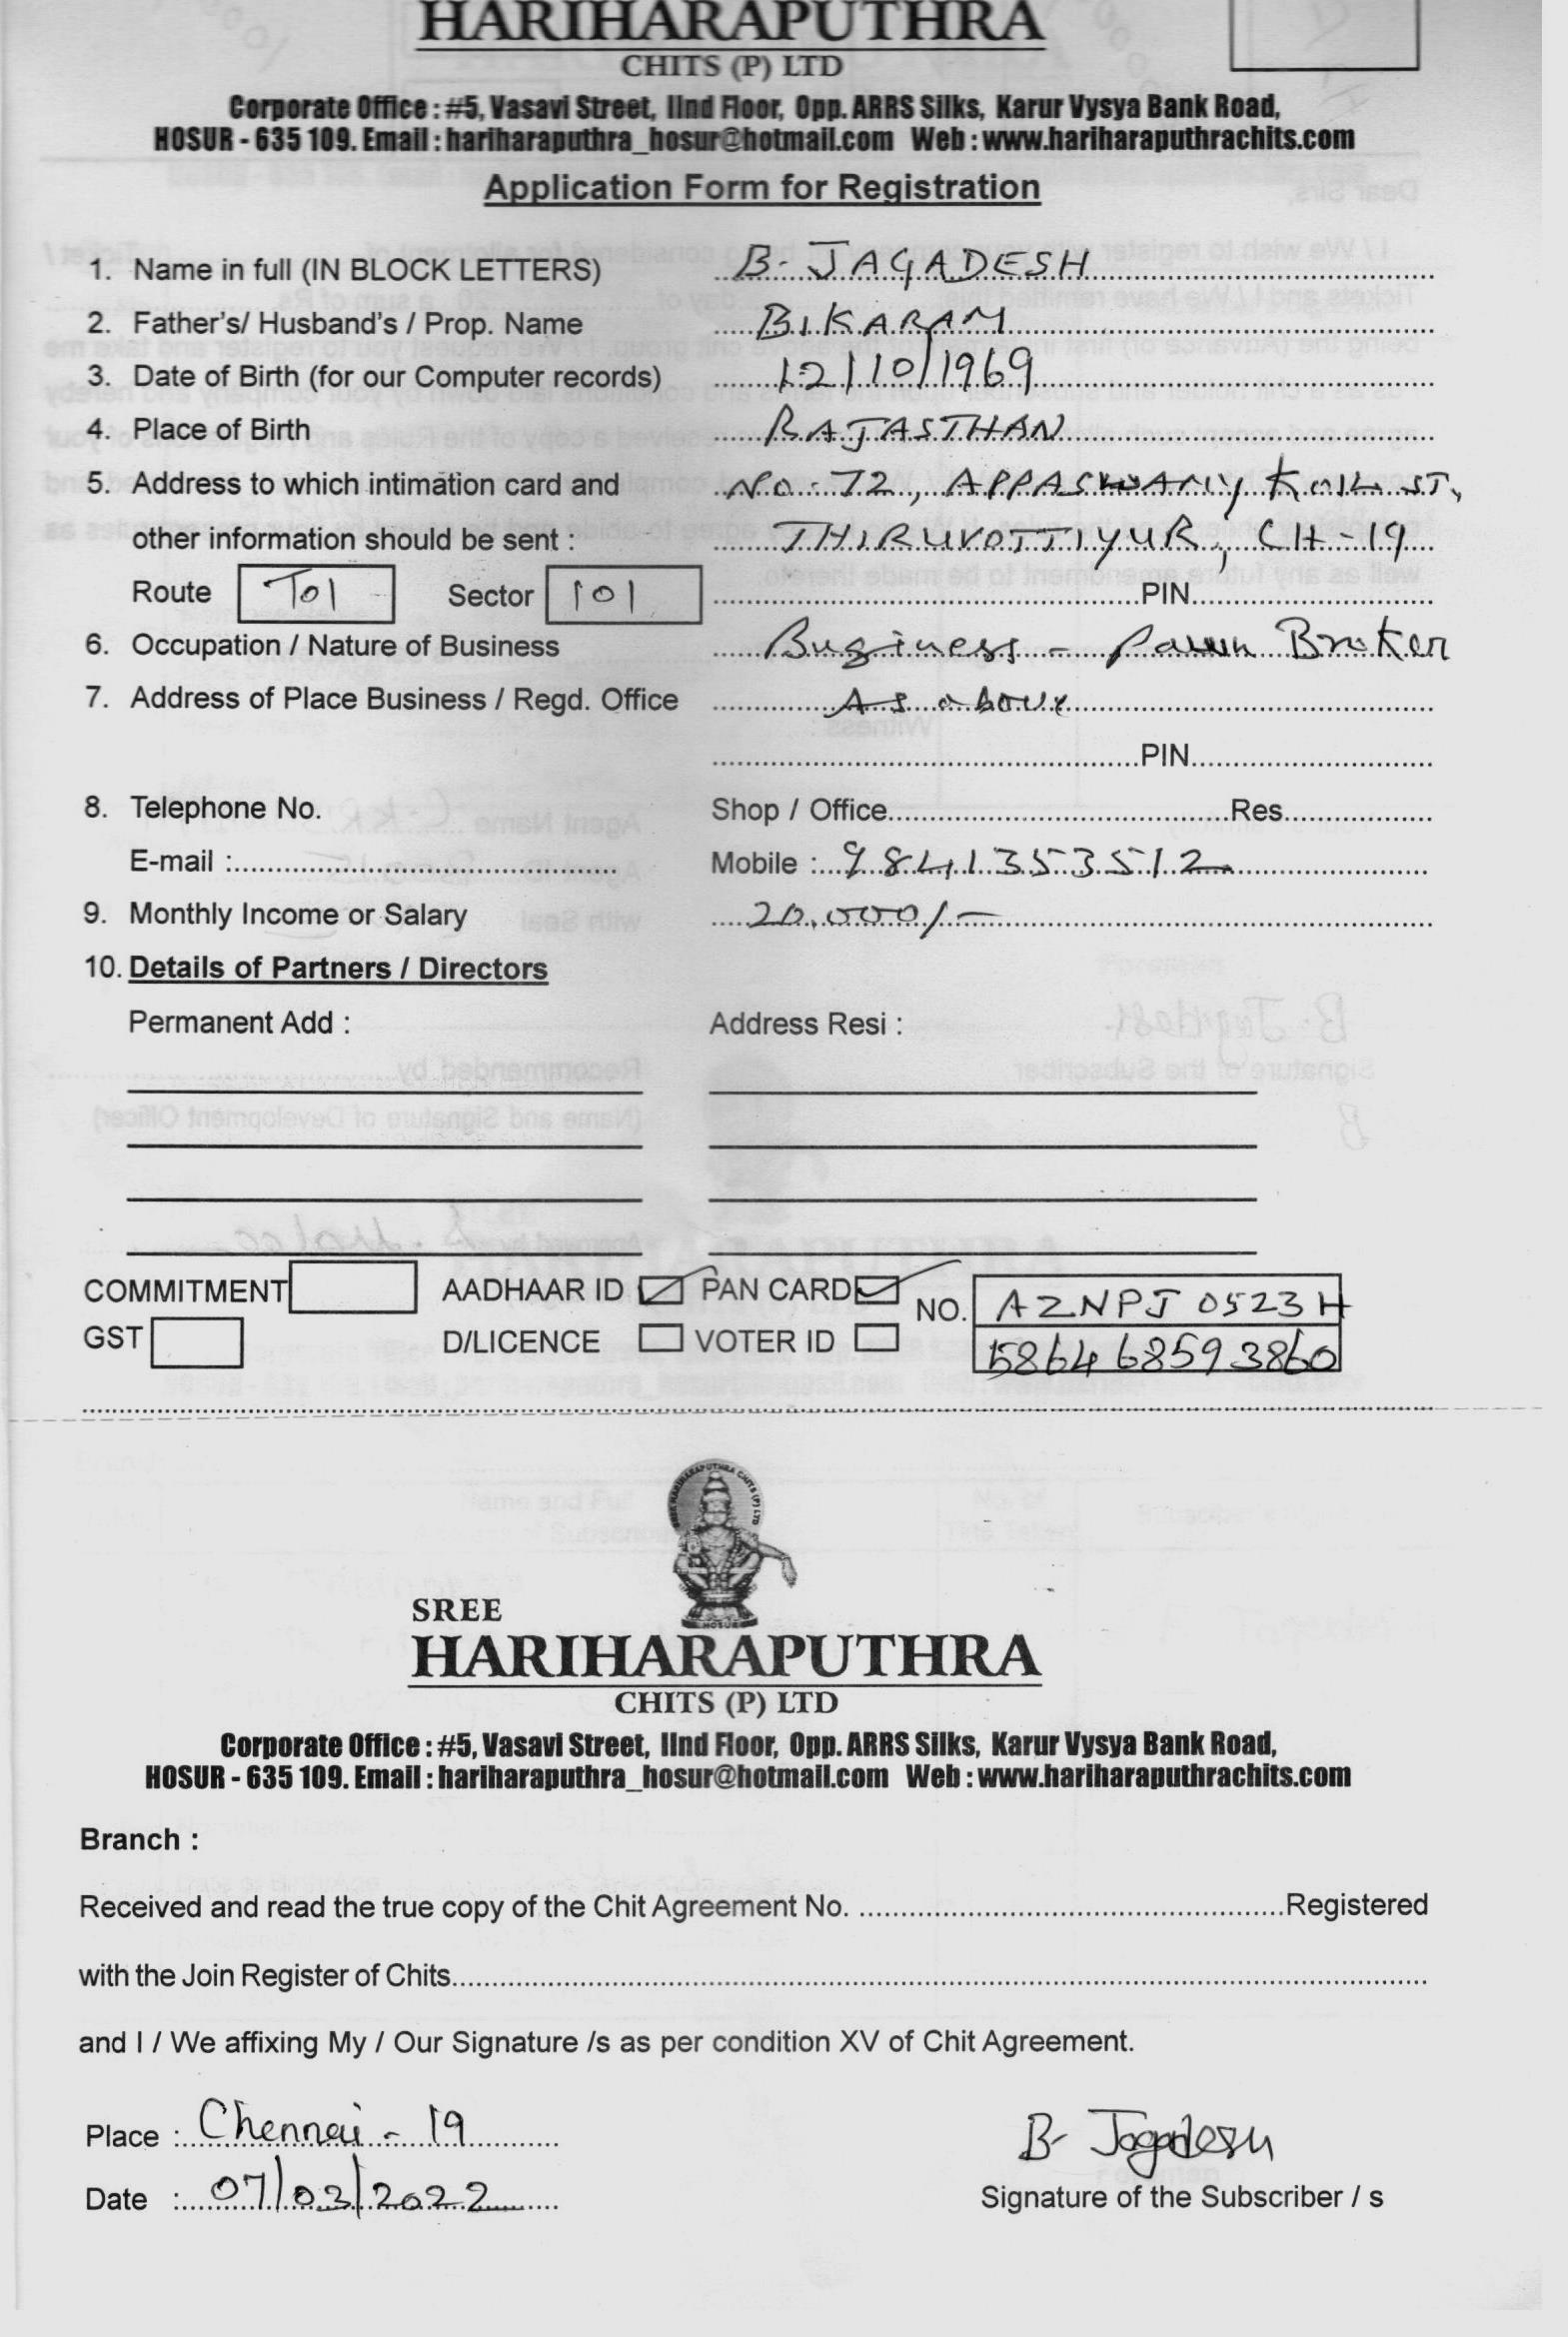 HARIHARAPUTHRA
CHITS (P) LTD
Corporate Office : #5, Vasavi Street, IInd Floor, Opp. ARRS Silks, Karur Vysya Bank Road,
HOSUR - 635 109. Email : hariharaputhra_hosur@hotmail.com Web : www.hariharaputhrachits.com
Application Form for Registration
1. Name in full (IN BLOCK LETTERS) B. JAGADESH
2. Father's/ Husband's / Prop. Name BIKARAM
3. Date of Birth (for our Computer records) 12/10/1969
4. Place of Birth RAJASTHAN
5. Address to which intimation card and No-72, APPASWAMY KOIL ST,
other information should be sent : THIRUVOTTIYUR, CH-19
Route T01 Sector 101 PIN
6. Occupation / Nature of Business Business - Pawn Broker
7. Address of Place Business / Regd. Office As above
PIN
8. Telephone No. Shop / Office Res
E-mail : Mobile : 9841353512
9. Monthly Income or Salary 20,000/-
10. Details of Partners / Directors
Permanent Add : Address Resi :
COMMITMENT AADHAAR ID PAN CARD NO. AZNPJ 0523H
GST D/LICENCE VOTER ID 586468593860
SREE
HARIHARAPUTHRA
CHITS (P) LTD
Corporate Office : #5, Vasavi Street, IInd Floor, Opp. ARRS Silks, Karur Vysya Bank Road,
HOSUR - 635 109. Email : hariharaputhra_hosur@hotmail.com Web : www.hariharaputhrachits.com
Branch :
Received and read the true copy of the Chit Agreement No. Registered
with the Join Register of Chits
and I / We affixing My / Our Signature /s as per condition XV of Chit Agreement.
Place : Chennai - 19
Date : 07/03/2022
B- Jagadesh
Signature of the Subscriber / s